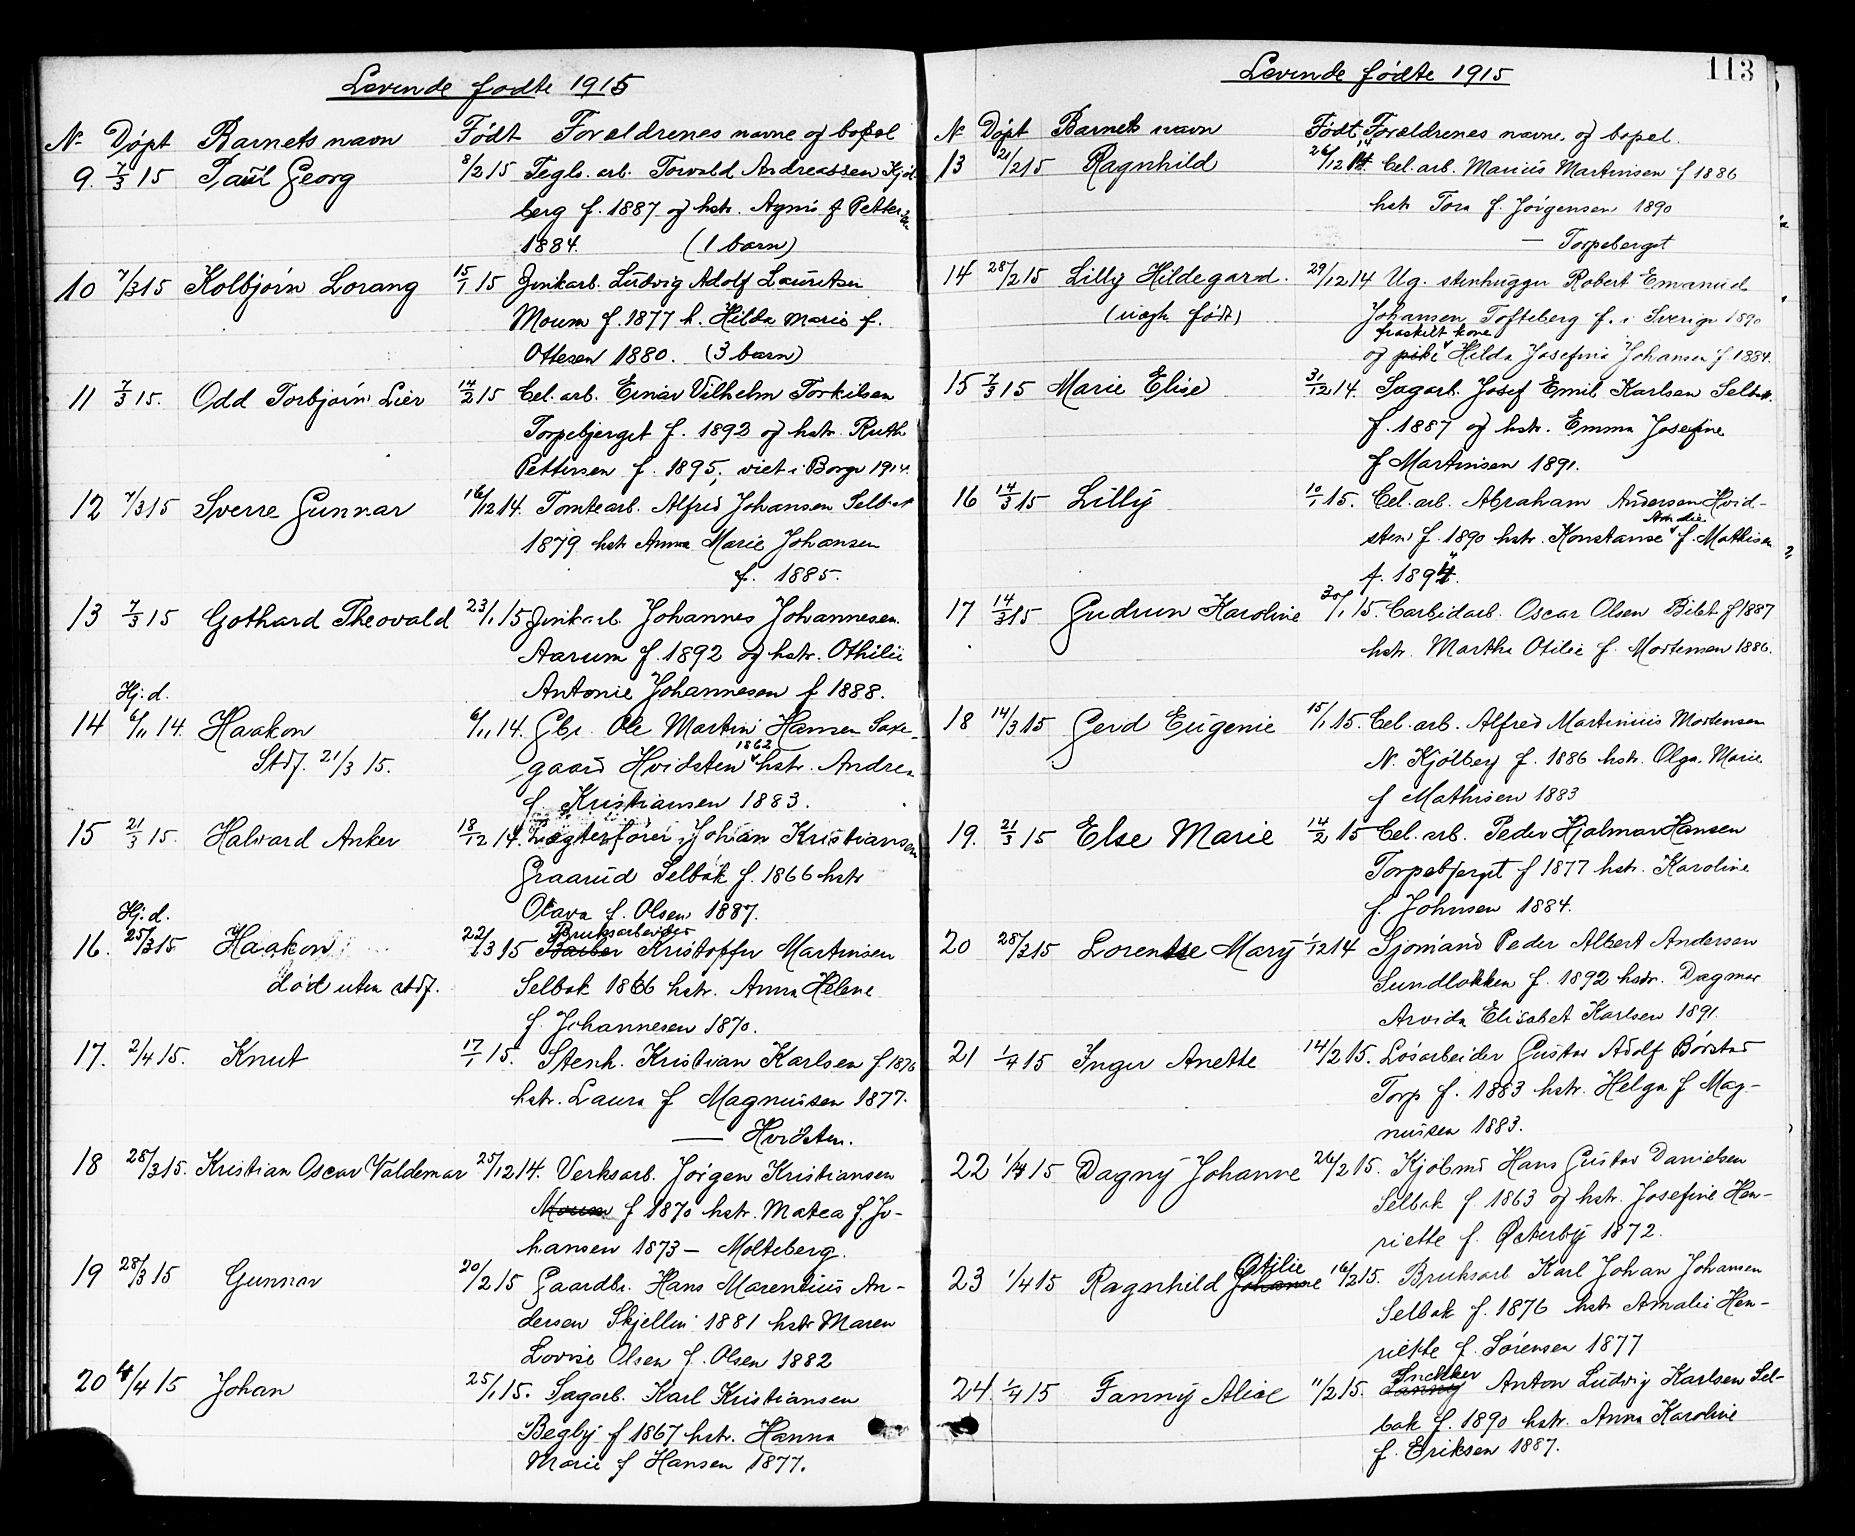 Levende fødte 1915
N. Døpt Barnets navn Født Forældrenes navne og bopæl
9. 7/3 15 Paul Georg 8/2 15 Teglv. arb. Torvald Andreassen Kjøl-
berg f. 1887 og hstr. Agnes f. Petter-
1884. (1 barn)
10 7/3 15 Kolbjørn Lorang 15/1 15 Zinkarb. Ludvig Adolf Lauritsen
Moum f. 1877 h. Hilda Marie f.
Ottesen 1880. (3 barn)
11 7/3 15. Odd Torbjørn Lier 14/2 15 Cel. arb. Einar Vilhelm Torkilsen
Torpebjerget f. 1892 og hstr. Ruth
Pettersen f. 1895, viet i Borge 1914.
12 7/3 15 Sverre Gunnar 16/12 14. Tomtearb. Alfred Johansen Selbak
1879 hstr Anna Marie Johansen
f. 1885.
13 7/3 15 Gothard Theovald 23/1 15 Zinkarb. Johannes Johannesen
Aarum f. 1892 og hstr. Othilie
Antonie Johannesen f 1888.
Hj. d.
14 6/11 14. Haakon 6/11 14. Gbr. Ole Martin Hansen Saxe-
Stdf. 21/3 15. gaard Hvidsten 1862 hstr. Andrea
f. Kristiansen 1883.
15 21/3 15. Halvard Anker 18/12 14. Lægterfører Johan Kristiansen
Graarud Selbak f. 1866 hstr
Olava f. Olsen 1887.
Hj. d.
16. 25/3 15 Haakon 22/3 15 Barber Bruksarbeider Kristoffer Martinsen
død uten stdf. Selbak 1866 hstr. Anna Helene
f. Johannesen 1870.
17. 2/4 15. Knut 17/1 15. Stenh. Kristian Karlsen f. 1876
hstr. Laura f Magnussen 1877.
— Hvidsten.
18 28/3 15. Kristian Oscar Valdemar 25/12 14. Verksarb. Jørgen Kristiansen
Moum f 1870 hstr. Matea f Jo-
hansen 1873 — Molteberg.
19 28/3 15 Gunnar 20/2 15 Gaardbr. Hans Marentius An-
dersen Skjellin 1881 hstr Maren
Lovise Olsen f. Olsen 1882
20 4/4 15 Johan 25/1 15. Sagarb. Karl Kristiansen
Begby f 1867 hstr. Hanna
Marie f Hansen 1877.
Levende fødte 1915 113
N. Døpt Barnets navn Født Forældrenes navne og bopæl.
13 21/2 15 Ragnhild 26/12 14 Cel. arb. Marius Martinsen f 1886
hstr Tora f. Jørgensen 1890
— Torpeberget
14 28/2 15 Lilly Hildegard. 29/12 14 Ug. stenhugger Robert Emanuel
(uægte født) Johansen Tofteberg f. i Sverige 1890
og pike fraskilt kone Hilda Josefine Johansen f 1884.
15 7/3 15 Marie Elise 31/12 14. Sagarb. Josef Emil Karlsen Selbak.
f. 1887 og hstr. Emma Josefine
f Martinsen 1891.
16 14/3 15 Lilly 10/1 15. Cel. arb. Abraham Andersen Hvid-
sten f. 1890 hstr. Konstanse Amalie f. Mathisen
f. 1894.
17 14/3 15 Gudrun Karoline 30/1 15. Carbidarb. Oscar Olsen Bilet f 1887
hstr. Martha Otilie f. Mortensen 1886.
18 14/3 15 Gerd Eugenie 15/1 15. Cel. arb. Alfred Martinius Mortensen
N. Kjølberg f. 1886 hstr. Olga Marie
f Mathisen 1883
19. 21/3 15 Else Marie 14/2 15 Cel. arb. Peder Hjalmar Hansen
Torpebjerget f 1877 hstr. Karoline
f. Johnsen 1884.
20 28/3 15 Lorentse Mary 1/12 14 Sjømand Peder Albert Andersen
Sundløkken f. 1892 hstr. Dagmar
Arvida Elisabet Karlsen 1891
21 1/4 15 Inger Anette 14/2 15. Løsarbeider Gustav Adolf Børstad
Torp f. 1883 hstr. Helga f Mag-
nussen 1883.
22 1/4 15 Dagny Johanne 26/2 15. Kjøbmd Hans Gustav Danielsen
Selbak f. 1863 og hstr. Josefine Hen-
riette f. Østerby 1872.
23 1/4 15 Ragnhild Johanne Otilie 16/2 15. Bruksarb Karl Johan Johansen
Selbak f. 1876 hstr Amalie Hen-
riette f. Sørensen 1877
24. 1/4 15 Fanny Alice 11/2 15. Snekker Anton Ludvig Karlsen Sel-
bak f. 1890 hstr. Anna Karoline
f. Eriksen 1887.